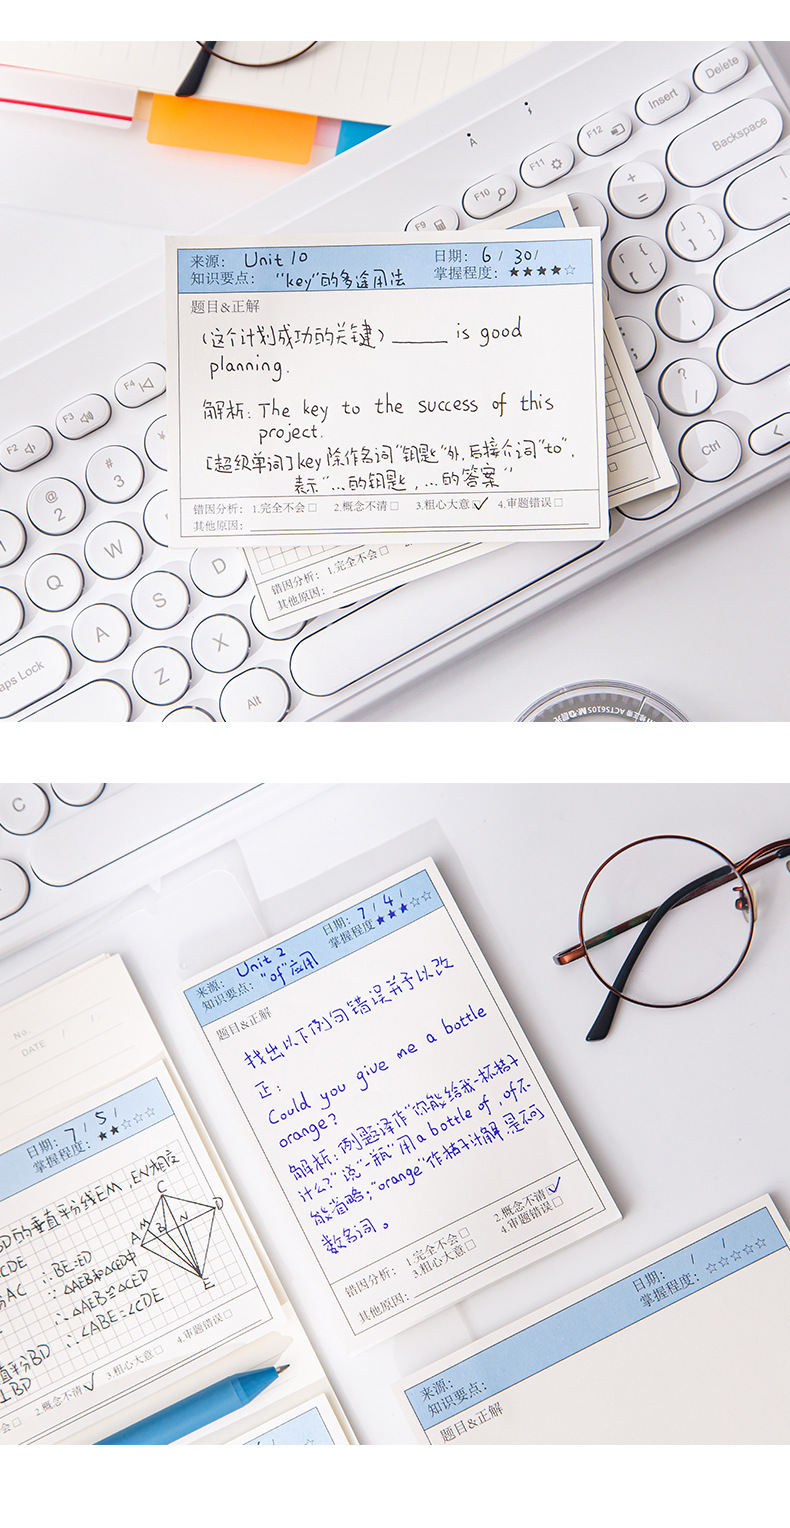 Delete
Insert
Backspace
F12
F11
F10
F9
A
来源: Unit 10 日期: 6 / 30 /
知识要点: "key"的多途用法 掌握程度: ★★★★☆
题目&正解
(这个计划成功的关键) ______ is good
planning.
解析: The key to the success of this
project.
[超级单词] key 除作名词"钥匙"外,后接介词"to",
表示"...的钥匙, ...的答案"
错因分析: 1.完全不会□ 2.概念不清□ 3.粗心大意☑ 4.审题错误□
其他原因:
错因分析: 1.完全不会□
其他原因:
F4
F3
F2
@
2
#
3
Q
W
A
S
D
Z
X
aps Lock
Alt
Ctrl
ACT56105
C
来源: Unit 2 日期: 7 / 4 /
知识要点: "of"应用 掌握程度 ★★★☆☆
题目&正解
找出以下例句错误并予以改
正:
Could you give me a bottle
orange?
解析: 例题译作"你能给我一杯桔子
汁么?"说"一瓶"用 a bottle of , of不
能省略; "orange"作桔子汁解是不可
数名词。
错因分析: 1.完全不会□ 2.概念不清☑
3.粗心大意□ 4.审题错误□
其他原因:
No.
DATE / /
日期: 7 / 5 /
掌握程度: ★★☆☆☆
BD的垂直平分线EM, EN相度
CDE
∴BE=ED
AC ∵△AEB和△CED中
∴△AEB≌△CED
∴∠ABE=∠CDE
直平分BD
⊥BD
A M C B N D E
会□ 2.概念不清☑ 3.粗心大意□ 4.审题错误□
来源: 日期: / /
知识要点: 掌握程度: ☆☆☆☆☆
题目&正解